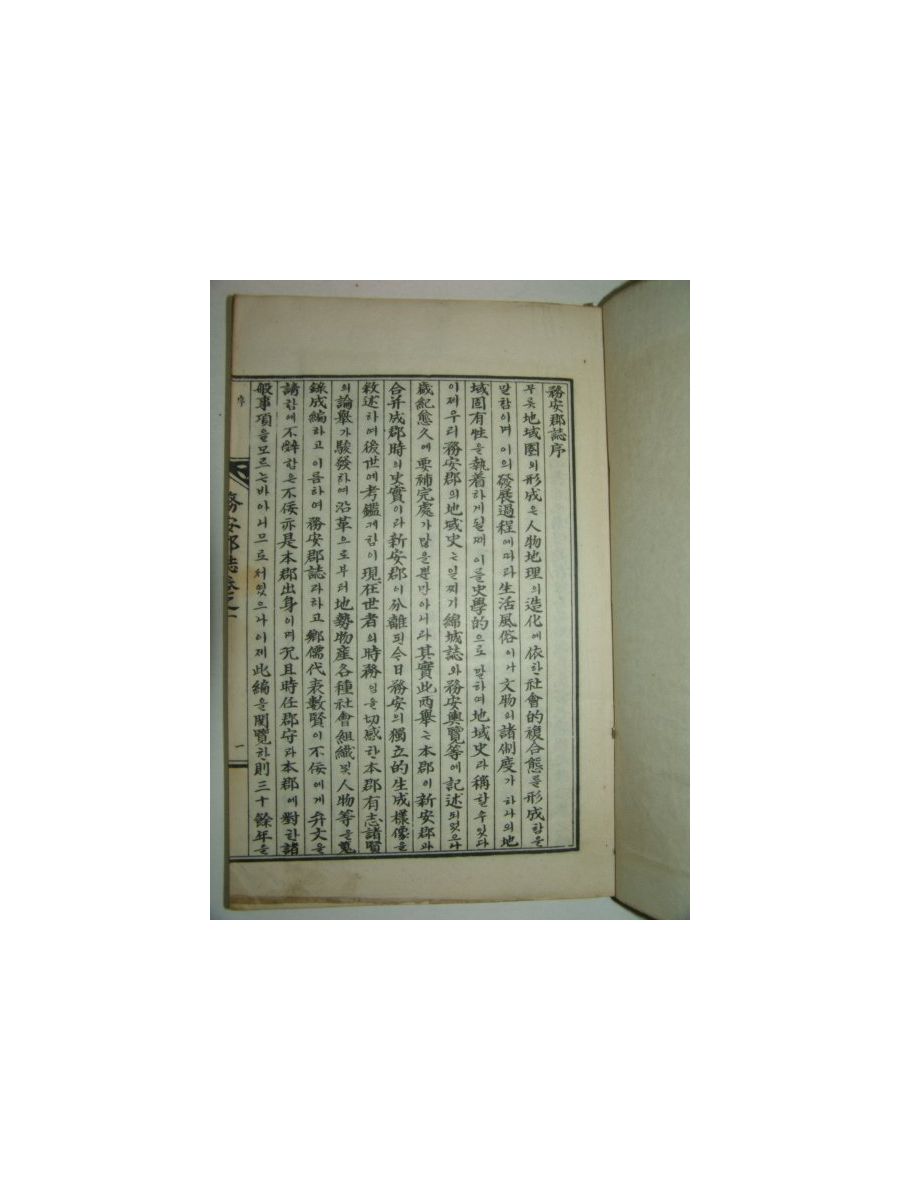 務安郡誌序
무릇地域圈의形成은人物地理의造化에依한社會的複合態를形成함을
말함이며이의發展過程에따라生活風俗이나文物의諸制度가하나의地
域固有性을執着하게될때이를史學的으로말하여地域史라稱할수있다
이제우리務安郡의地域史는일찌기綿城誌와務安輿覽等에記述되었으나
歲紀愈久에要補完處가많을뿐만아니라其實此兩擧는本郡이新安郡과
合并成郡時의史實이라新安郡이分離된今日務安의獨立的生成樣像을
敘述하여後世에考鑑케함이現在世者의時務임을切感한本郡有志諸賢
의論擧가駿發하여沿革으로부터地勢物産各種社會組織및人物等을蒐
錄成編하고이름하여務安郡誌라하고鄕儒代表數賢이不佞에게弁文을
請함에不辭함은不佞亦是本郡出身이며况且時任郡守라本郡에對한諸
般事項을모르는바아니므로써였으나이제此編을閱覽한則三十餘年을
序
務安郡誌卷之一
一